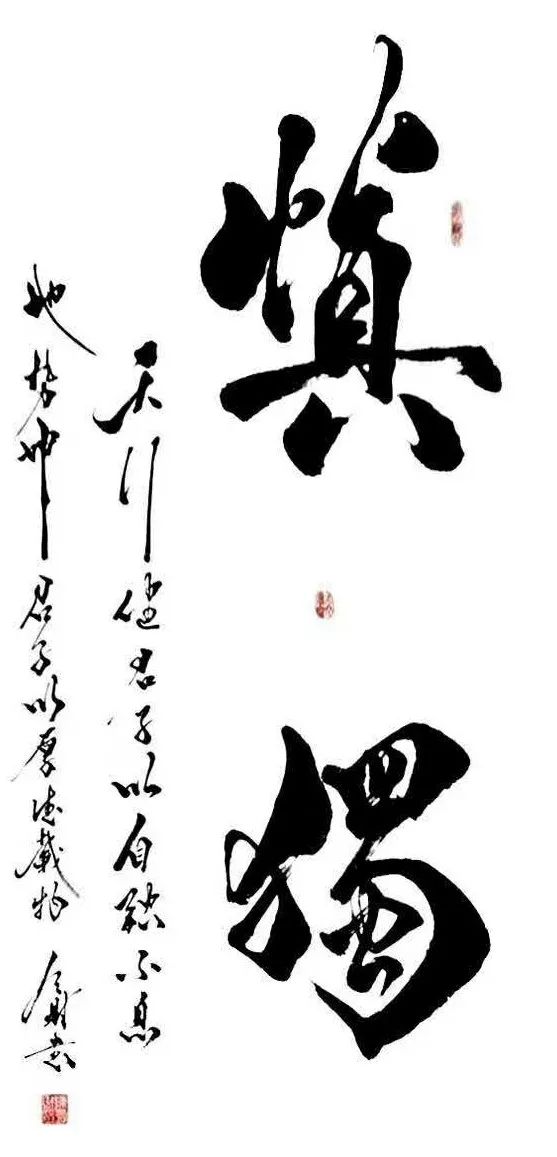 慎獨
天行健君子以自強不息
地势坤君子以厚德載物